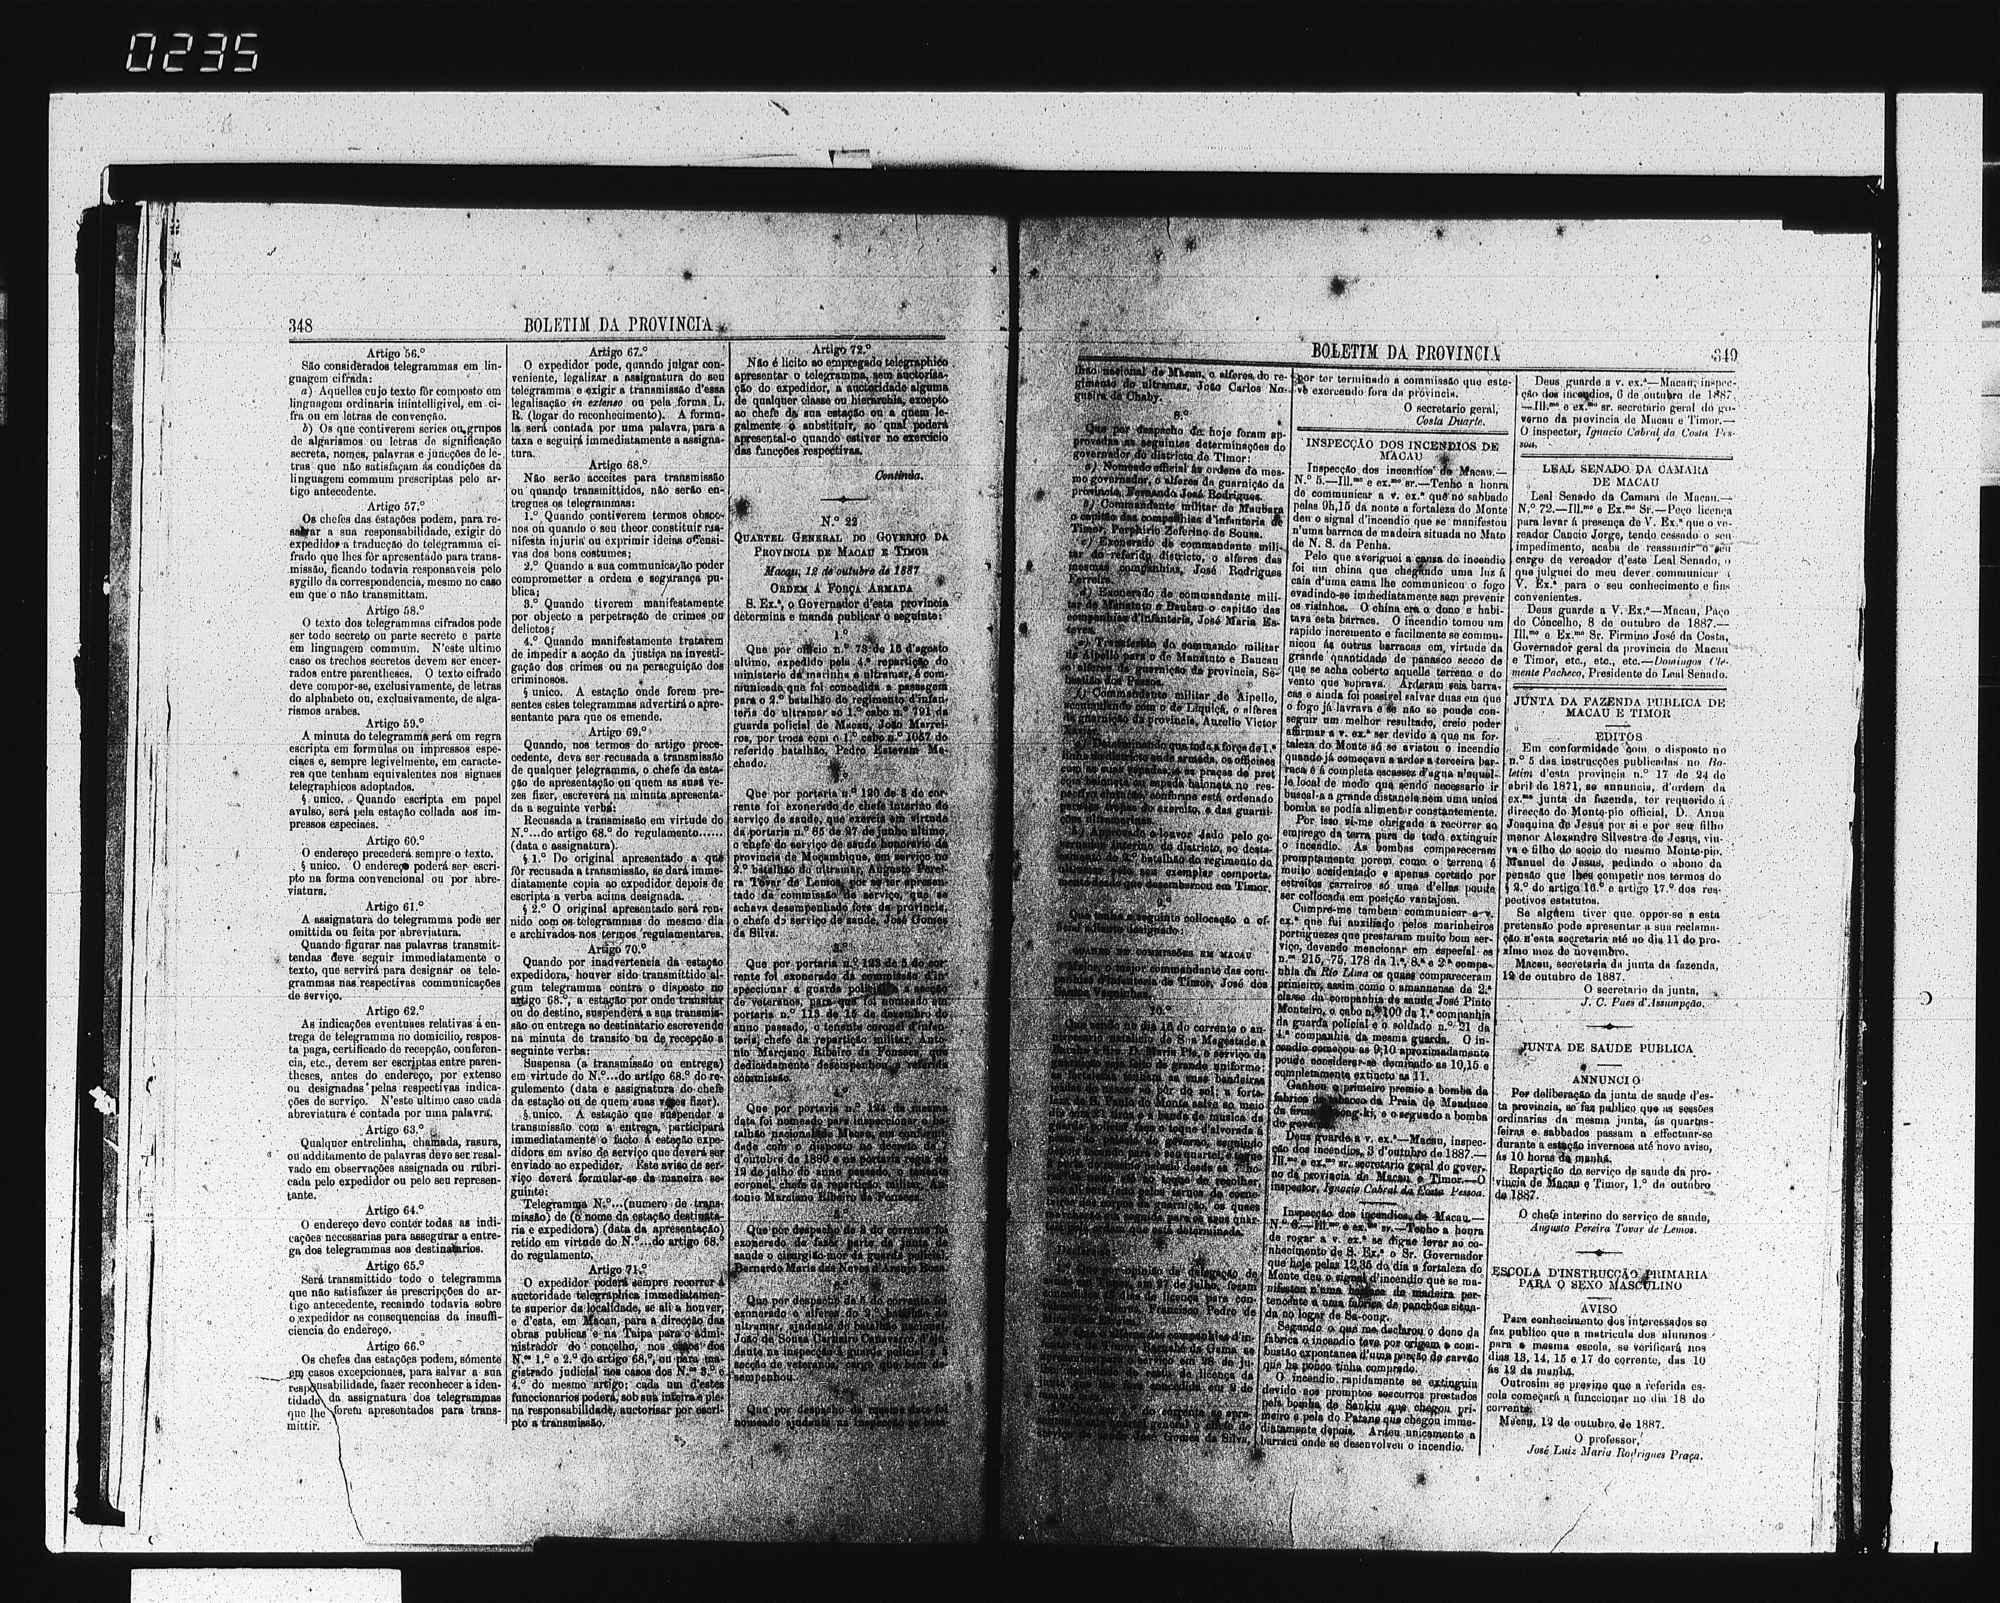 0235
348
BOLETIM DA PROVINCIA
Artigo 56.º
São considerados telegrammas em lin-
guagem cifrada:
a) Aquelles cujo texto fôr composto em
linguagem ordinaria inintelligivel, em ci-
fra ou em letras de convenção.
b) Os que contiverem series ou grupos
de algarismos ou letras de significação
secreta, nomes, palavras e juncções de le-
tras que não satisfaçam ás condições da
linguagem commum prescriptas pelo ar-
tigo antecedente.
Artigo 57.º
Os chefes das estações podem, para re-
salvar a sua responsabilidade, exigir do
expedidor a traducção do telegramma ci-
frado que lhes fôr apresentado para trans-
missão, ficando todavia responsaveis pelo
sygillo da correspondencia, mesmo no caso
em que o não transmittam.
Artigo 58.º
O texto dos telegrammas cifrados pode
ser todo secreto ou parte secreto e parte
em linguagem commum. N'este ultimo
caso os trechos secretos devem ser encer-
rados entre parentheses. O texto cifrado
deve compor-se, exclusivamente, de letras
do alphabeto ou, exclusivamente, de alga-
rismos arabes.
Artigo 59.º
A minuta do telegramma será em regra
escripta em formulas ou impressos espe-
ciaes e, sempre legivelmente, em caracte-
res que tenham equivalentes nos signaes
telegraphicos adoptados.
§ unico. Quando escripta em papel
avulso, será pela estação collada aos im-
pressos especiaes.
Artigo 60.º
O endereço precederá sempre o texto.
§ unico. O endereço poderá ser escri-
pto na forma convencional ou por abre-
viatura.
Artigo 61.º
A assignatura do telegramma pode ser
omittida ou feita por abreviatura.
Quando figurar nas palavras transmit-
tendas deve seguir immediatamente o
texto, que servirá para designar os tele-
grammas nas respectivas communicações
de serviço.
Artigo 62.º
As indicações eventuaes relativas á en-
trega de telegramma no domicilio, respos-
ta paga, certificado de recepção, conferen-
cia, etc., devem ser escriptas entre paren-
theses, antes do endereço, por extenso
ou designadas pelas respectivas indica-
ções de serviço. N'este ultimo caso cada
abreviatura é contada por uma palavra.
Artigo 63.º
Qualquer entrelinha, chamada, rasura,
ou additamento de palavras deve ser resal-
vado em observações assignada ou rubri-
cada pelo expedidor ou pelo seu represen-
tante.
Artigo 64.º
O endereço deve conter todas as indi-
cações necessarias para assegurar a entre-
ga dos telegrammas aos destinatarios.
Artigo 65.º
Será transmittido todo o telegramma
que não satisfazer ás prescripções do ar-
tigo antecedente, recaindo todavia sobre
o expedidor as consequencias da insuffi-
ciencia do endereço.
Artigo 66.º
Os chefes das estações podem, sómente
em casos excepcionaes, para salvar a sua
responsabilidade, fazer reconhecer a iden-
tidade da assignatura dos telegrammas
que lhe forem apresentados para trans-
mittir.
Artigo 67.º
O expedidor pode, quando julgar con-
veniente, legalizar a assignatura do seu
telegramma e exigir a transmissão d'essa
legalisação in extenso ou pela forma L.
R. (logar do reconhecimento). A formu-
la será contada por uma palavra, para a
taxa e seguirá immediatamente a assigna-
tura.
Artigo 68.º
Não serão acceites para transmissão
ou quando transmittidos, não serão en-
tregues os telegrammas:
1.º Quando contiverem termos obsce-
nos ou quando o seu theor constituir ma-
nifesta injuria ou exprimir ideias offensi-
vas dos bons costumes;
2.º Quando a sua communicação poder
comprometter a ordem e segurança pu-
blica;
3.º Quando tiverem manifestamente
por objecto a perpetração de crimes ou
delictos;
4.º Quando manifestamente tratarem
de impedir a acção da justiça na investi-
gação dos crimes ou na perseguição dos
criminosos.
§ unico. A estação onde forem pre-
sentes estes telegrammas advertirá o apre-
sentante para que os emende.
Artigo 69.º
Quando, nos termos do artigo prece-
cedente, deva ser recusada a transmissão
de qualquer telegramma, o chefe da esta-
ção de apresentação ou quem as suas ve-
zes fizer, escreverá na minuta apresenta-
da a seguinte verba:
Recusada a transmissão em virtude do
N.º...do artigo 68.º do regulamento......
(data e assignatura).
§ 1.º Do original apresentado a que
fôr recusada a transmissão, se dará imme-
diatamente copia ao expedidor depois de
escripta a verba acima designada.
§ 2.º O original apresentado será reu-
nido com os telegrammas do mesmo dia
e archivados nos termos regulamentares.
Artigo 70.º
Quando por inadvertencia da estação
expedidora, houver sido transmittido al-
gum telegramma contra o disposto no
artigo 68.º, a estação por onde transitar
ou do destino, suspenderá a sua transmis-
são ou entrega ao destinatario escrevendo
na minuta de transito ou de recepção a
seguinte verba:
Suspensa (a transmissão ou entrega)
em virtude do N.º...do artigo 68.º do re-
gulemento (data e assignatura do chefe
da estação ou de quem suas vezes fizer).
§ unico. A estação que suspender a
transmissão com a entrega, participará
immediatamente o facto á estação expe-
didora em aviso de serviço que deverá ser
enviado ao expedidor. Este aviso de ser-
viço deverá formular-se da maneira se-
guinte:
Telegramma N.º...(numero de trans-
missão) de (o nome da estação destinata-
ria e expedidora) (data da apresentação)
retido em virtude do N.º...do artigo 68.º
do regulamento.
Artigo 71.º
O expedidor poderá sempre recorrer á
auctoridade telegraphica immediatamen-
te superior da localidade, se ali a houver,
e d'esta, em Macau, para a direcção das
obras publicas e na Taipa para o admi-
nistrador do concelho, nos casos dos
N.os 1.º e 2.º do artigo 68.º, ou para ma-
gistrado judicial nos casos dos N.os 3.º e
4.º do mesmo artigo; cada um d'estes
funccionarios poderá, sob sua inteira e ple-
na responsabilidade, auctorisar por escri-
pto a transmissão.
Artigo 72.º
Não é licito ao empregado telegraphico
apresentar o telegramma, sem auctorisa-
ção do expedidor, a auctoridade alguma
de qualquer classe ou hierarchia, excepto
ao chefe da sua estação ou a quem le-
galmente o substituir, ao qual poderá
apresental-o quando estiver no exercicio
das funcções respectivas.
Continúa.
N.º 22
QUARTEL GENERAL DO GOVERNO DA
PROVINCIA DE MACAU E TIMOR
Macau, 12 de outubro de 1887
ORDEM Á FORÇA ARMADA
S. Ex.ª, o Governador d'esta provincia
determina e manda publicar o seguinte:
1.º
Que por officio n.º 73 de 16 d'agosto
ultimo, expedido pela 4.ª repartição do
ministerio da marinha e ultramar, é com-
municado que foi concedida a passagem
para o 2.º batalhão do regimento d'infan-
teria do ultramar ao 1.º cabo n.º 791 da
guarda policial de Macau, João Marrei-
ros, por troca com o 1.º cabo n.º 1057 do
referido batalhão, Pedro Estevam Ma-
chado.
Que por portaria n.º 120 de 3 do cor-
rente foi exonerado de chefe interino do
serviço de saude, que exercia em virtude
da portaria n.º 85 de 27 de junho ultimo,
o chefe do serviço de saude honorario da
provincia de Moçambique, em serviço no
2.º batalhão do ultramar, Augusto Perei-
ra Tovar de Lemos, por se ter apresen-
tado da commissão de serviço, que se
achava desempenhado fora da provincia,
o chefe do serviço de saude, José Gomes
da Silva.
3.º
Que por portaria n.º 123 de 5 do cor-
rente foi exonerado da commissão d'in-
speccionar a guarda policial e a secção
de veteranos, para que foi nomeado em
portaria n.º 113 de 15 de dezembro do
anno passado, o tenente coronel d'infan-
teria, chefe da repartição militar, Anto-
nio Marciano Ribeiro da Fonseca, que
dedicadamente desempenhou a referida
commissão.
4.º
Que por portaria n.º 124 da mesma
data foi nomeado para inspeccionar o ba-
talhão nacional de Macau, em conformi-
dade com o disposto no decreto de
d'outubro de 1860 e na portaria regia de
19 de julho do anno passado, o tenente
coronel, chefe da repartição militar, An-
tonio Marciano Ribeiro da Fonseca.
Que por despacho de 3 do corrente foi
exonerado de fazer parte da junta de
saude o cirurgião-mór da guarda policial,
Bernardo Maria das Neves d'Araujo Rosa.
6.º
Que por despacho de 5 do corrente foi
exonerado o alferes do 2.º batalhão do
ultramar, ajudante do batalhão nacional,
João de Sousa Carneiro Canavarro, d'aju-
dante na inspecção á guarda policial e á
secção de veteranos, cargo que bem de-
sempenhou.
Que por despacho da mesma data foi
nomeado ajudante na inspecção ao bata-
BOLETIM DA PROVINCIA
349
lhão nacional de Macau, o alferes do re-
gimento do ultramar, João Carlos No-
gueira de Chaby.
8.º
Que por despacho de hoje foram ap-
provadas as seguintes determinações do
governador do districto de Timor:
a) Nomeado official ás ordens do mes-
mo governador, o alferes da guarnição da
provincia, Fernando José Rodrigues.
b) Commandante militar de Maubara
o capitão das companhias d'infanteria de
Timor, Porphirio Zeferino de Sousa.
c) Exonerado de commandante mili-
tar do referido districto, o alferes das
mesmas companhias, José Rodrigues
Ferreira.
d) Exonerado de commandante mili-
tar de Manatuto e Baucau o capitão das
companhias d'infanteria, José Maria Es-
teves.
e) Transferido do commando militar
de Aipello para o de Manatuto e Baucau
o alferes da guarnição da provincia, Se-
bastião dos Passos.
f) Commandante militar de Aipello,
accumulando com o de Liquiçá, o alferes
da guarnição da provincia, Aurelio Victor
Xavier.
g) Determinando que toda a força de 1.ª
linha do districto ande armada, os officiaes
com as suas espadas, e as praças de pret
h) Approvado o louvor dado pelo go-
vernador interino do districto, ao desta-
camento do 2.º batalhão do regimento do
ultramar pelo seu exemplar comporta-
mento desde que desembarcou em Timor.
9.º
Que tenha a seguinte collocação o of-
ficial adiante designado:
QUADRO DE COMMISSÕES EM MACAU
Major, o major commandante das com-
panhias d'infanteria de Timor, José dos
10.º
Que sendo no dia 16 do corrente o an-
niversario natalicio de Sua Magestade a
Rainha a Sra. D. Maria Pia, o serviço da
por ter terminado a commissão que este-
ve exercendo fora da provincia.
O secretario geral,
Costa Duarte.
INSPECÇÃO DOS INCENDIOS DE
MACAU
Inspecção dos incendios de Macau.—
N.º 5.—Ill.mo e ex.mo sr.—Tenho a honra
de communicar a v. ex.ª que no sabbado
pelas 9h,15 da noute a fortaleza do Monte
deu o signal d'incendio que se manifestou
n'uma barraca de madeira situada no Mato
de N. S. da Penha.
Pelo que averiguei a causa do incendio
foi um china que chegando uma luz á
caia d'uma cama lhe communicou o fogo
evadindo-se immediatamente sem prevenir
os visinhos. O china era o dono e habi-
tava esta barraca. O incendio tomou um
rapido incremento e facilmente se commu-
nicou ás outras barracas em virtude da
grande quantidade de panasco secco de
que se acha coberto aquelle terreno e do
vento que soprava. Arderam seis barra-
cas e ainda foi possivel salvar duas em que
o fogo já lavrava e se não se poude con-
seguir um melhor resultado, creio poder
affirmar a v. ex.ª ser devido a que na for-
taleza do Monte só se avistou o incendio
quando já começava a arder a terceira bar-
raca e á completa escassez d'agua n'aquel-
le local de modo que sendo necessario ir
buscal-a a grande distancia nem uma unica
bomba se podia alimentar constantemente.
Por isso vi-me obrigado a recorrer ao
emprego da terra para de todo extinguir
o incendio. As bombas compareceram
promptamente porem como o terreno é
muito accidentado e apenas cortado por
estreitos carreiros só uma d'ellas poude
ser collocada em posição vantajosa.
Cumpre-me tambem communicar a v.
ex.ª que fui auxiliado pelos marinheiros
portuguezes que prestaram muito bom ser-
viço, devendo mencionar em especial os
n.os 215, 75, 178 da 1.ª, 8.ª e 2.ª compa-
nhia da Rio Lima os quaes compareceram
primeiro, assim como o amanuense de 2.ª
classe da companhia de saude José Pinto
Monteiro, o cabo n.º 100 da 1.ª companhia
da guarda policial e o soldado n.º 21 da
4.ª companhia da mesma guarda. O in-
cendio começou ás 9,10 aproximadamente
poude considerar-se dominado ás 10,15 e
completamente extincto ás 11.
Ganhou o primeiro premio a bomba da
fabrica de tabacco da Praia do Manduco
da firma ong-ki, e o segundo a bomba
do governo.
Deus guarde a v. ex.ª—Macau, inspec-
ção dos incendios, 3 d'outubro de 1887.—
Ill.mo e ex.mo sr. secretario geral do gover-
no da provincia de Macau e Timor.—O
inspector, Ignacio Cabral da Costa Pessoa.
Inspecção dos incendios de Macau.—
N.º 6.—Ill.mo e ex.mo sr.—Tenho a honra
de rogar a v. ex.ª se digne levar ao co-
nhecimento de S. Ex.ª o Sr. Governador
que hoje pelas 12,35 do dia a fortaleza do
Monte deu o signal d'incendio que se ma-
nifestou n'uma barraca de madeira per-
tencente a uma fabrica de panchões situa-
da no logar de Sa-cong.
Segundo o que me declarou o dono da
fabrica o incendio teve por origem a com-
bustão expontanea d'uma porção de carvão
que ha pouco tinha comprado.
O incendio rapidamente se extinguiu
devido aos promptos soccorros prestados
pela bomba de Sankiu que chegou pri-
meiro e pela do Patane que chegou imme-
diatamente depois. Ardeu unicamente a
barraca onde se desenvolveu o incendio.
Deus guarde a v. ex.ª—Macau, inspec-
ção dos incendios, 6 de outubro de 1887.
—Ill.mo e ex.mo sr. secretario geral do go-
verno da provincia de Macau e Timor.—
O inspector, Ignacio Cabral da Costa Pes-
soa.
LEAL SENADO DA CAMARA
DE MACAU
Leal Senado da Camara de Macau.—
N.º 72.—Ill.mo e Ex.mo Sr.—Peço licença
para levar á presença de V. Ex.ª que o ve-
reador Cancio Jorge, tendo cessado o seu
impedimento, acaba de reassumir o seu
cargo de vereador d'este Leal Senado, o
que julguei do meu dever communicar a
V. Ex.ª para o seu conhecimento e fins
convenientes.
Deus guarde a V. Ex.ª—Macau, Paço
do Concelho, 8 de outubro de 1887.—
Ill.mo e Ex.mo Sr. Firmino José da Costa,
Governador geral da provincia de Macau
e Timor, etc., etc., etc.—Domingos Cle-
mente Pacheco, Presidente do Leal Senado.
JUNTA DA FAZENDA PUBLICA DE
MACAU E TIMOR
EDITOS
Em conformidade com o disposto no
n.º 5 das instrucções publicadas no Bo-
letim d'esta provincia n.º 17 de 24 de
abril de 1871, se annuncia, d'ordem da
ex.ma junta da fazenda, ter requerido á
direcção do Monte-pio official, D. Anna
Joaquina de Jesus por si e por seu filho
menor Alexandre Silvestre de Jesus, viu-
va e filho do socio do mesmo Monte-pio,
Manuel de Jesus, pedindo o abono da
pensão que lhes competir nos termos do
§ 2.º do artigo 16.º e artigo 17.º dos res-
pectivos estatutos.
Se alguem tiver que oppor-se a esta
pretensão pode apresentar a sua reclama-
ção n'esta secretaria até ao dia 11 do pro-
ximo mez de novembro.
Macau, secretaria da junta da fazenda,
12 de outubro de 1887.
O secretario da junta,
J. C. Paes d'Assumpção.
JUNTA DE SAUDE PUBLICA
ANNUNCIO
Por deliberação da junta de saude d'es-
ta provincia, se faz publico que as sessões
ordinarias da mesma junta, ás quartas-
feiras e sabbados passam a effectuar-se
durante a estação invernosa até novo aviso,
ás 10 horas da manhã.
Repartição do serviço de saude da pro-
vincia de Macau e Timor, 1.º de outubro
de 1887.
O chefe interino do serviço de saude,
Augusto Pereira Tovar de Lemos.
ESCOLA D'INSTRUCÇÃO PRIMARIA
PARA O SEXO MASCULINO
AVISO
Para conhecimento dos interessados se
faz publico que a matricula dos alumnos
para a mesma escola, se verificará nos
dias 13, 14, 15 e 17 do corrente, das 10
ás 12 da manhã.
Outrosim se previne que a referida es-
cola começará a funccionar no dia 18 do
corrente.
Macau, 12 de outubro de 1887.
O professor,
José Luiz Maria Rodrigues Praça.